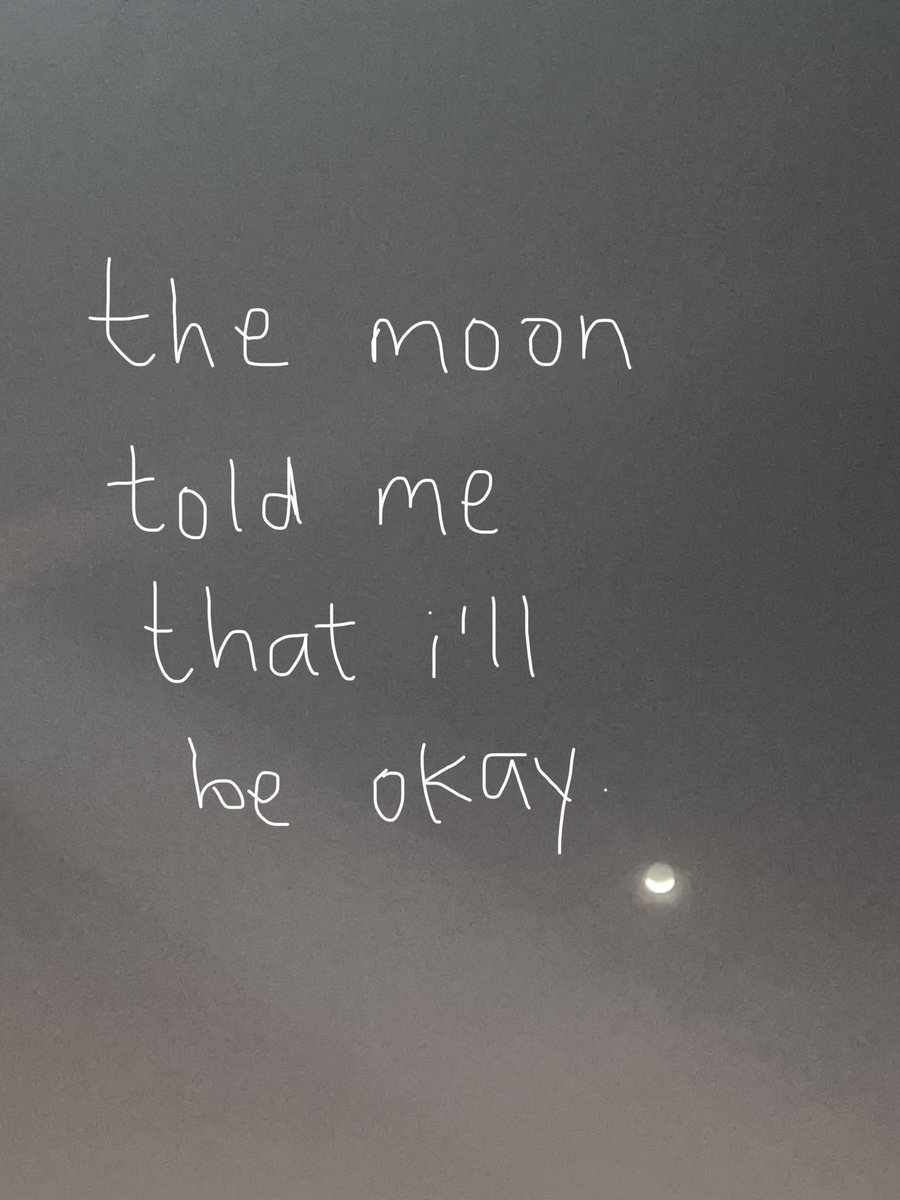 the moon
told me
that i'll
be okay.